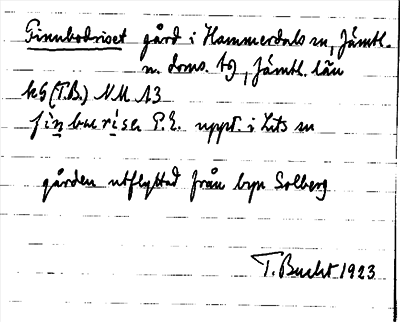 Finnbodriset gård i Hammerdals sn, Jämtl.
n. doms. tg, Jämtl. län
kG (T.B.) NM A3
finburisen P.E. uppt. i Lits sn
gården utflyttad från byn Solberg
T. Bucht 1923